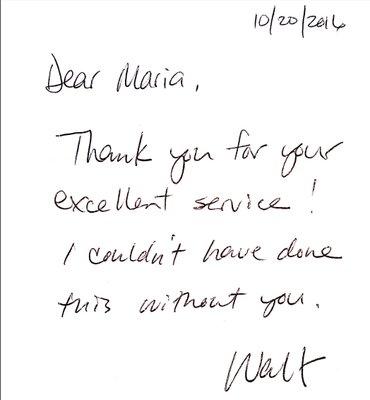 10/20/2016
Dear Maria,
Thank you for your
excellent service!
I couldn't have done
this without you.
Walt